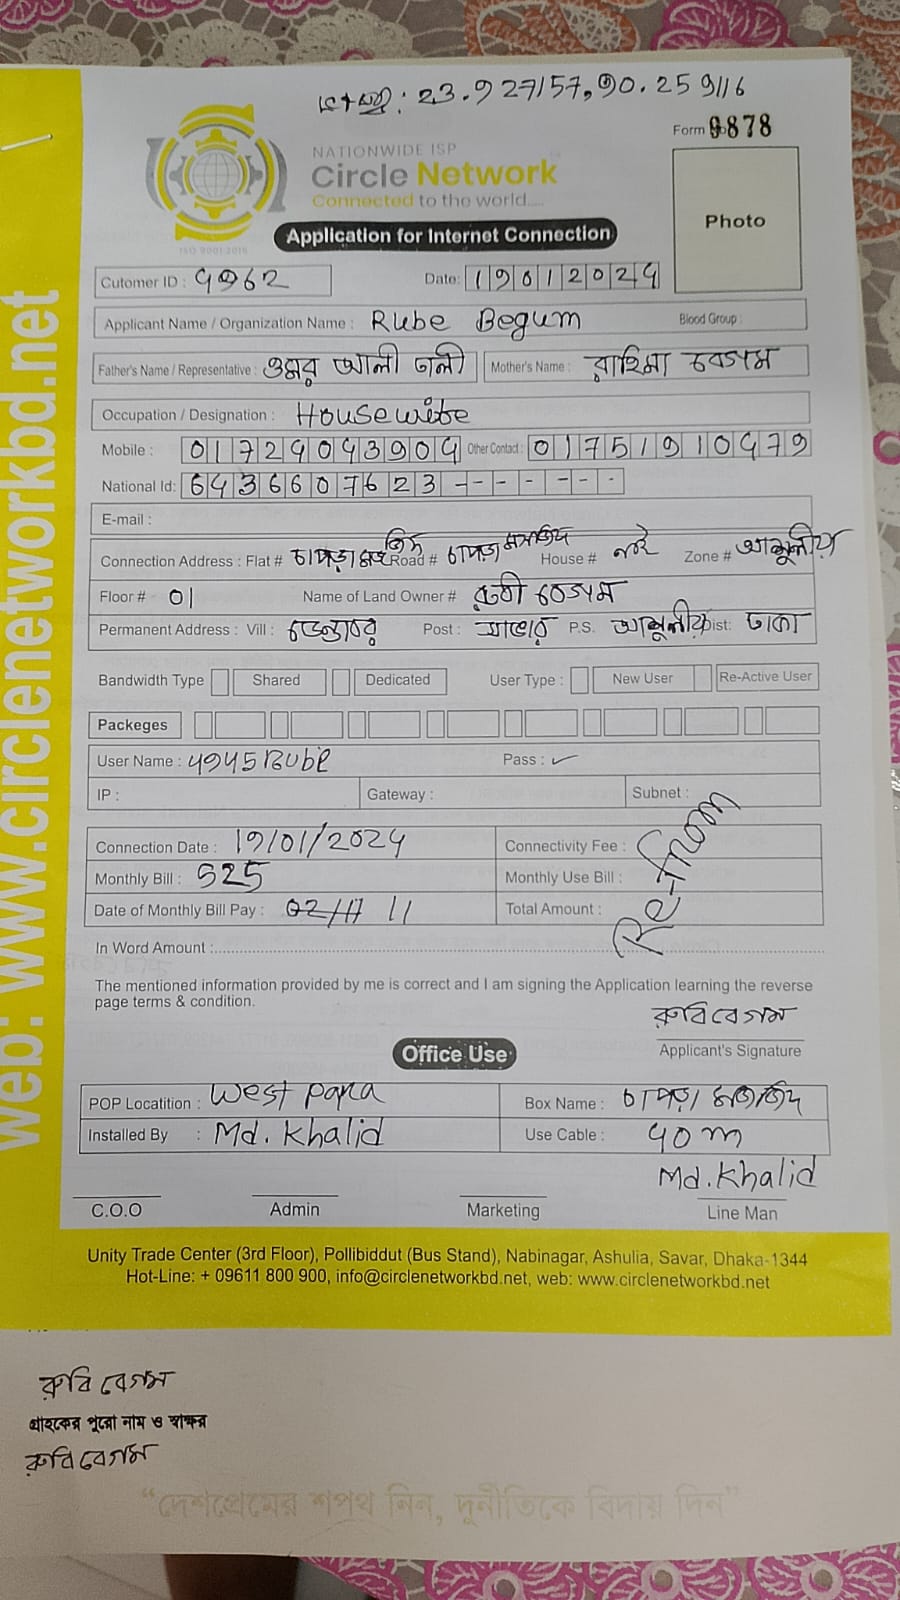 23.927157,90.259116
Form 9878
NATIONWIDE ISP
Circle Network
Connected to the world.....
ISO 9001:2015
Photo
Application for Internet Connection
Cutomer ID : 4962 Date: 19012024
Applicant Name / Organization Name : Rube Begum Blood Group :
Father's Name / Representative : ওমর আলী ঢালী Mother's Name : রাহিমা বেগম
Occupation / Designation : Housewife
Mobile : 01724043904 Other Contact : 01751910479
National Id: 6436607623 - - - - - - -
E-mail :
Connection Address : Flat # চাপড়া মসজিদ Road # চাপড়া মসজিদ House # নাই Zone # আশুলিয়া
Floor # 01 Name of Land Owner # রুবী বেগম
Permanent Address : Vill : ডেন্ডাবর Post : সাভার P.S. আশুলীয়া Dist: ঢাকা
Bandwidth Type Shared Dedicated User Type : New User Re-Active User
Packeges
User Name : 4945Rube Pass : ✓
IP : Gateway : Subnet :
Connection Date : 19/01/2024 Connectivity Fee :
Monthly Bill : 525 Monthly Use Bill :
Date of Monthly Bill Pay : 11 Total Amount :
Re-from
In Word Amount :
The mentioned information provided by me is correct and I am signing the Application learning the reverse
page terms & condition.
রুবি বেগম
Applicant's Signature
Office Use
POP Locatition : West para Box Name : চাপড়া মসজিদ
Installed By : Md. Khalid Use Cable : 40 m
Md. Khalid
C.O.O Admin Marketing Line Man
Unity Trade Center (3rd Floor), Pollibiddut (Bus Stand), Nabinagar, Ashulia, Savar, Dhaka-1344
Hot-Line: + 09611 800 900, info@circlenetworkbd.net, web: www.circlenetworkbd.net
web: www.circlenetworkbd.net
রুবি বেগম
গ্রাহকের পুরো নাম ও স্বাক্ষর
রুবি বেগম
“দেশপ্রেমের শপথ নিন, দুর্নীতিকে বিদায় দিন”